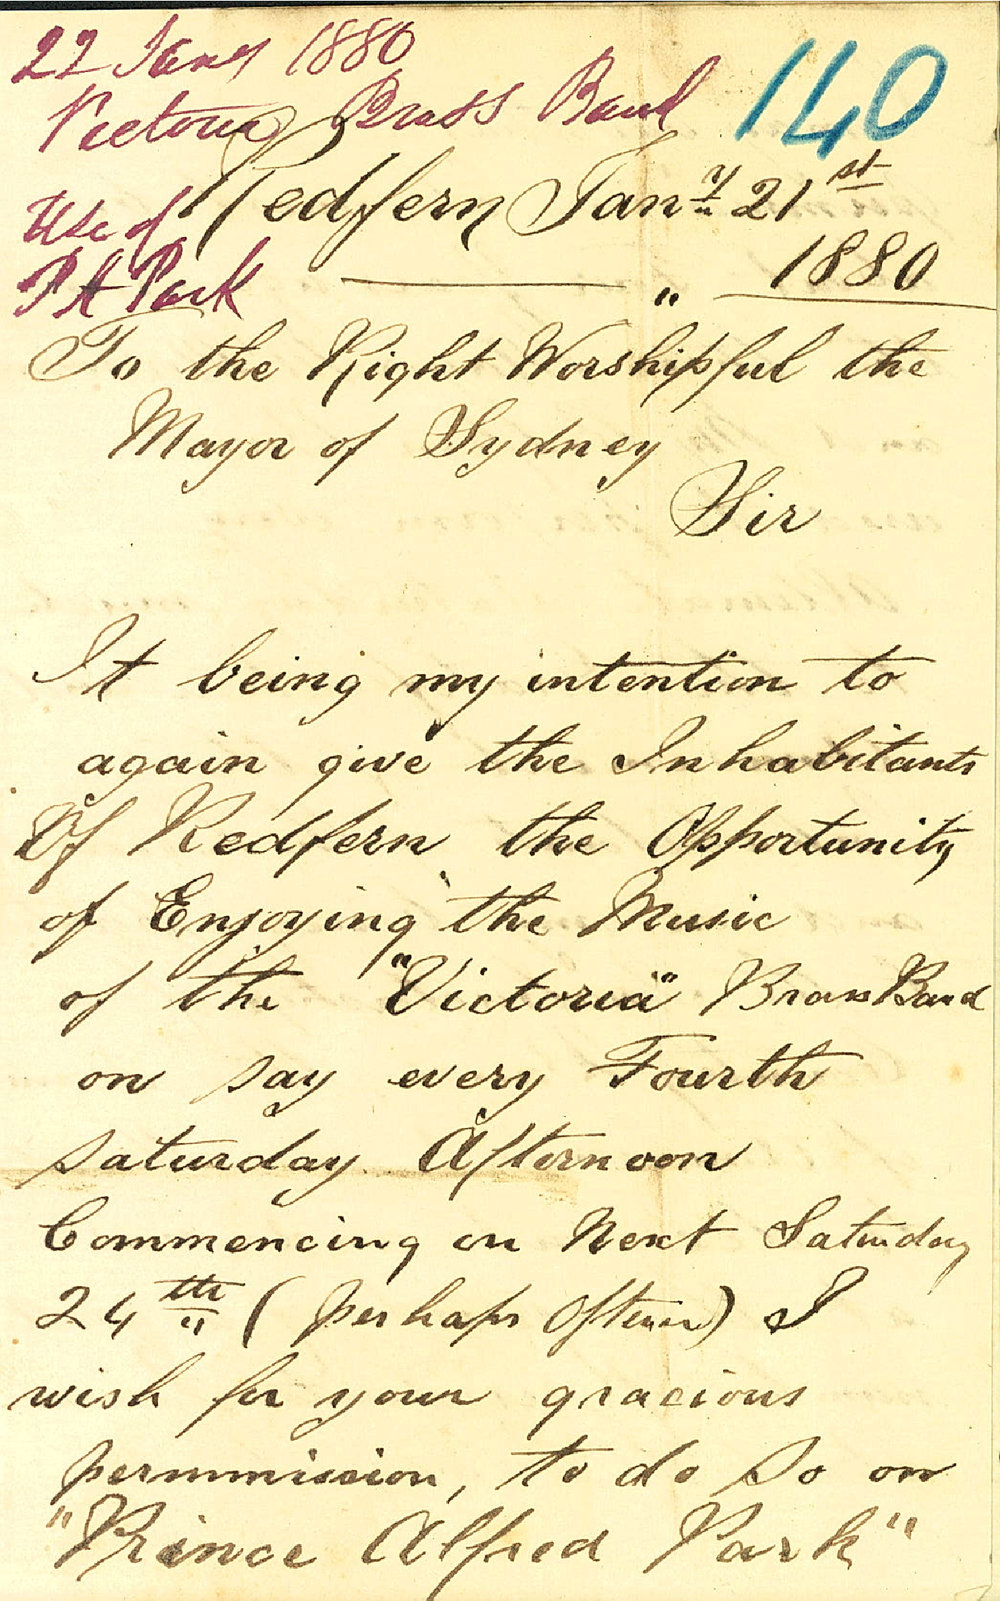 22 Jany 1880
140
Victoria Brass Band
Redfern Jany 21st
Use of
1880
P A Park
To the Right Worshipful the
Mayor of Sydney
Sir
It being my intention to
again give the Inhabitants
Of Redfern the Opportunity
of Enjoying the Music
of the "Victoria" Brass Band
on say every Fourth
Saturday Afternoon
Commencing on Next Saturday
24th (perhaps oftener) I
wish for your gracious
permmission, to do so on
"Prince Alfred Park"